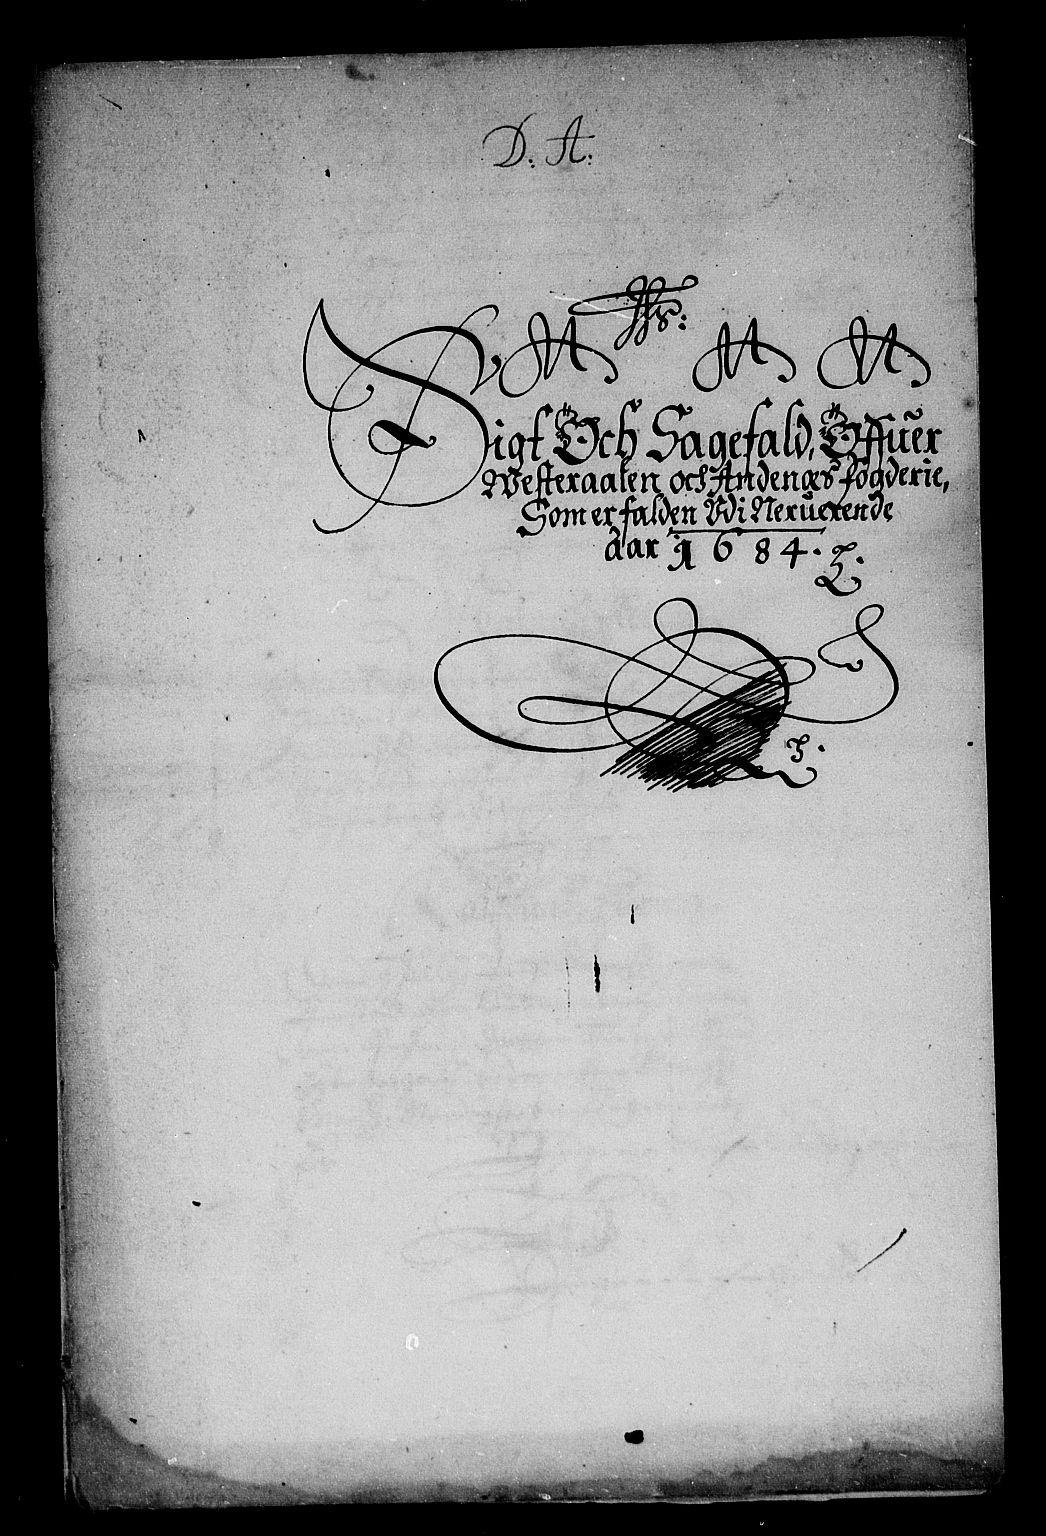 D. A.
Sigt Och Sagefald, Offuer
Westeraalen och Andenæs fogderie,
Som er falden Udi Nerwerende
aar 1684.